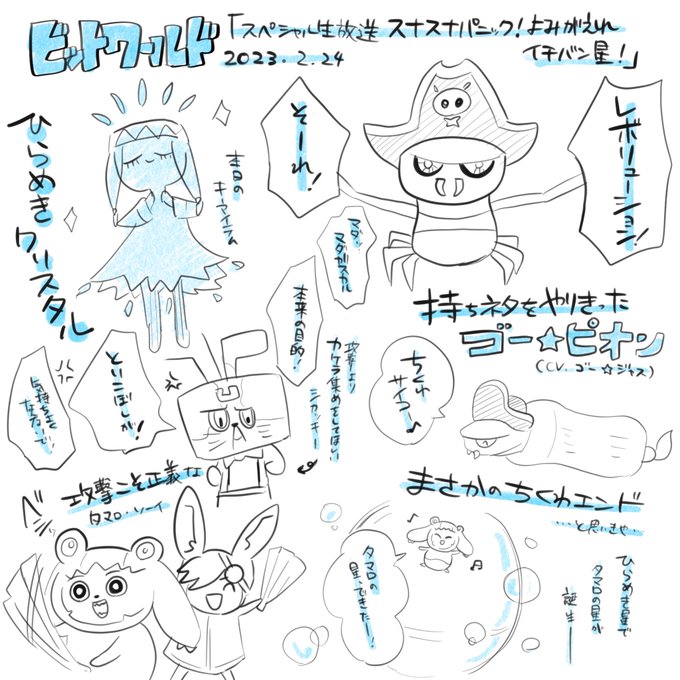 ビットワールド
「スペシャル生放送 スナスナパニック！よみがえれ
イチバン星！」
2023.2.24
ひらめきクリスタル
本日の
キーアイテム
そーれ！
レボリューション！
マダ、
マダガスカル
持ちネタをやりきった
ゴー☆ピオン
(CV. ゴー☆ジャス)
本来の目的！
攻撃より
カケラ集めをしてほしい
シカッキー
といこぼしが！
ちくわ
サイコー♪
攻撃こそ正義な
タマロ・ソーイ
ベシッ
まさかのちくわエンド
…と思いきや…
タマロの
星、できたー！
ひらめき星で
タマロの星が
誕生